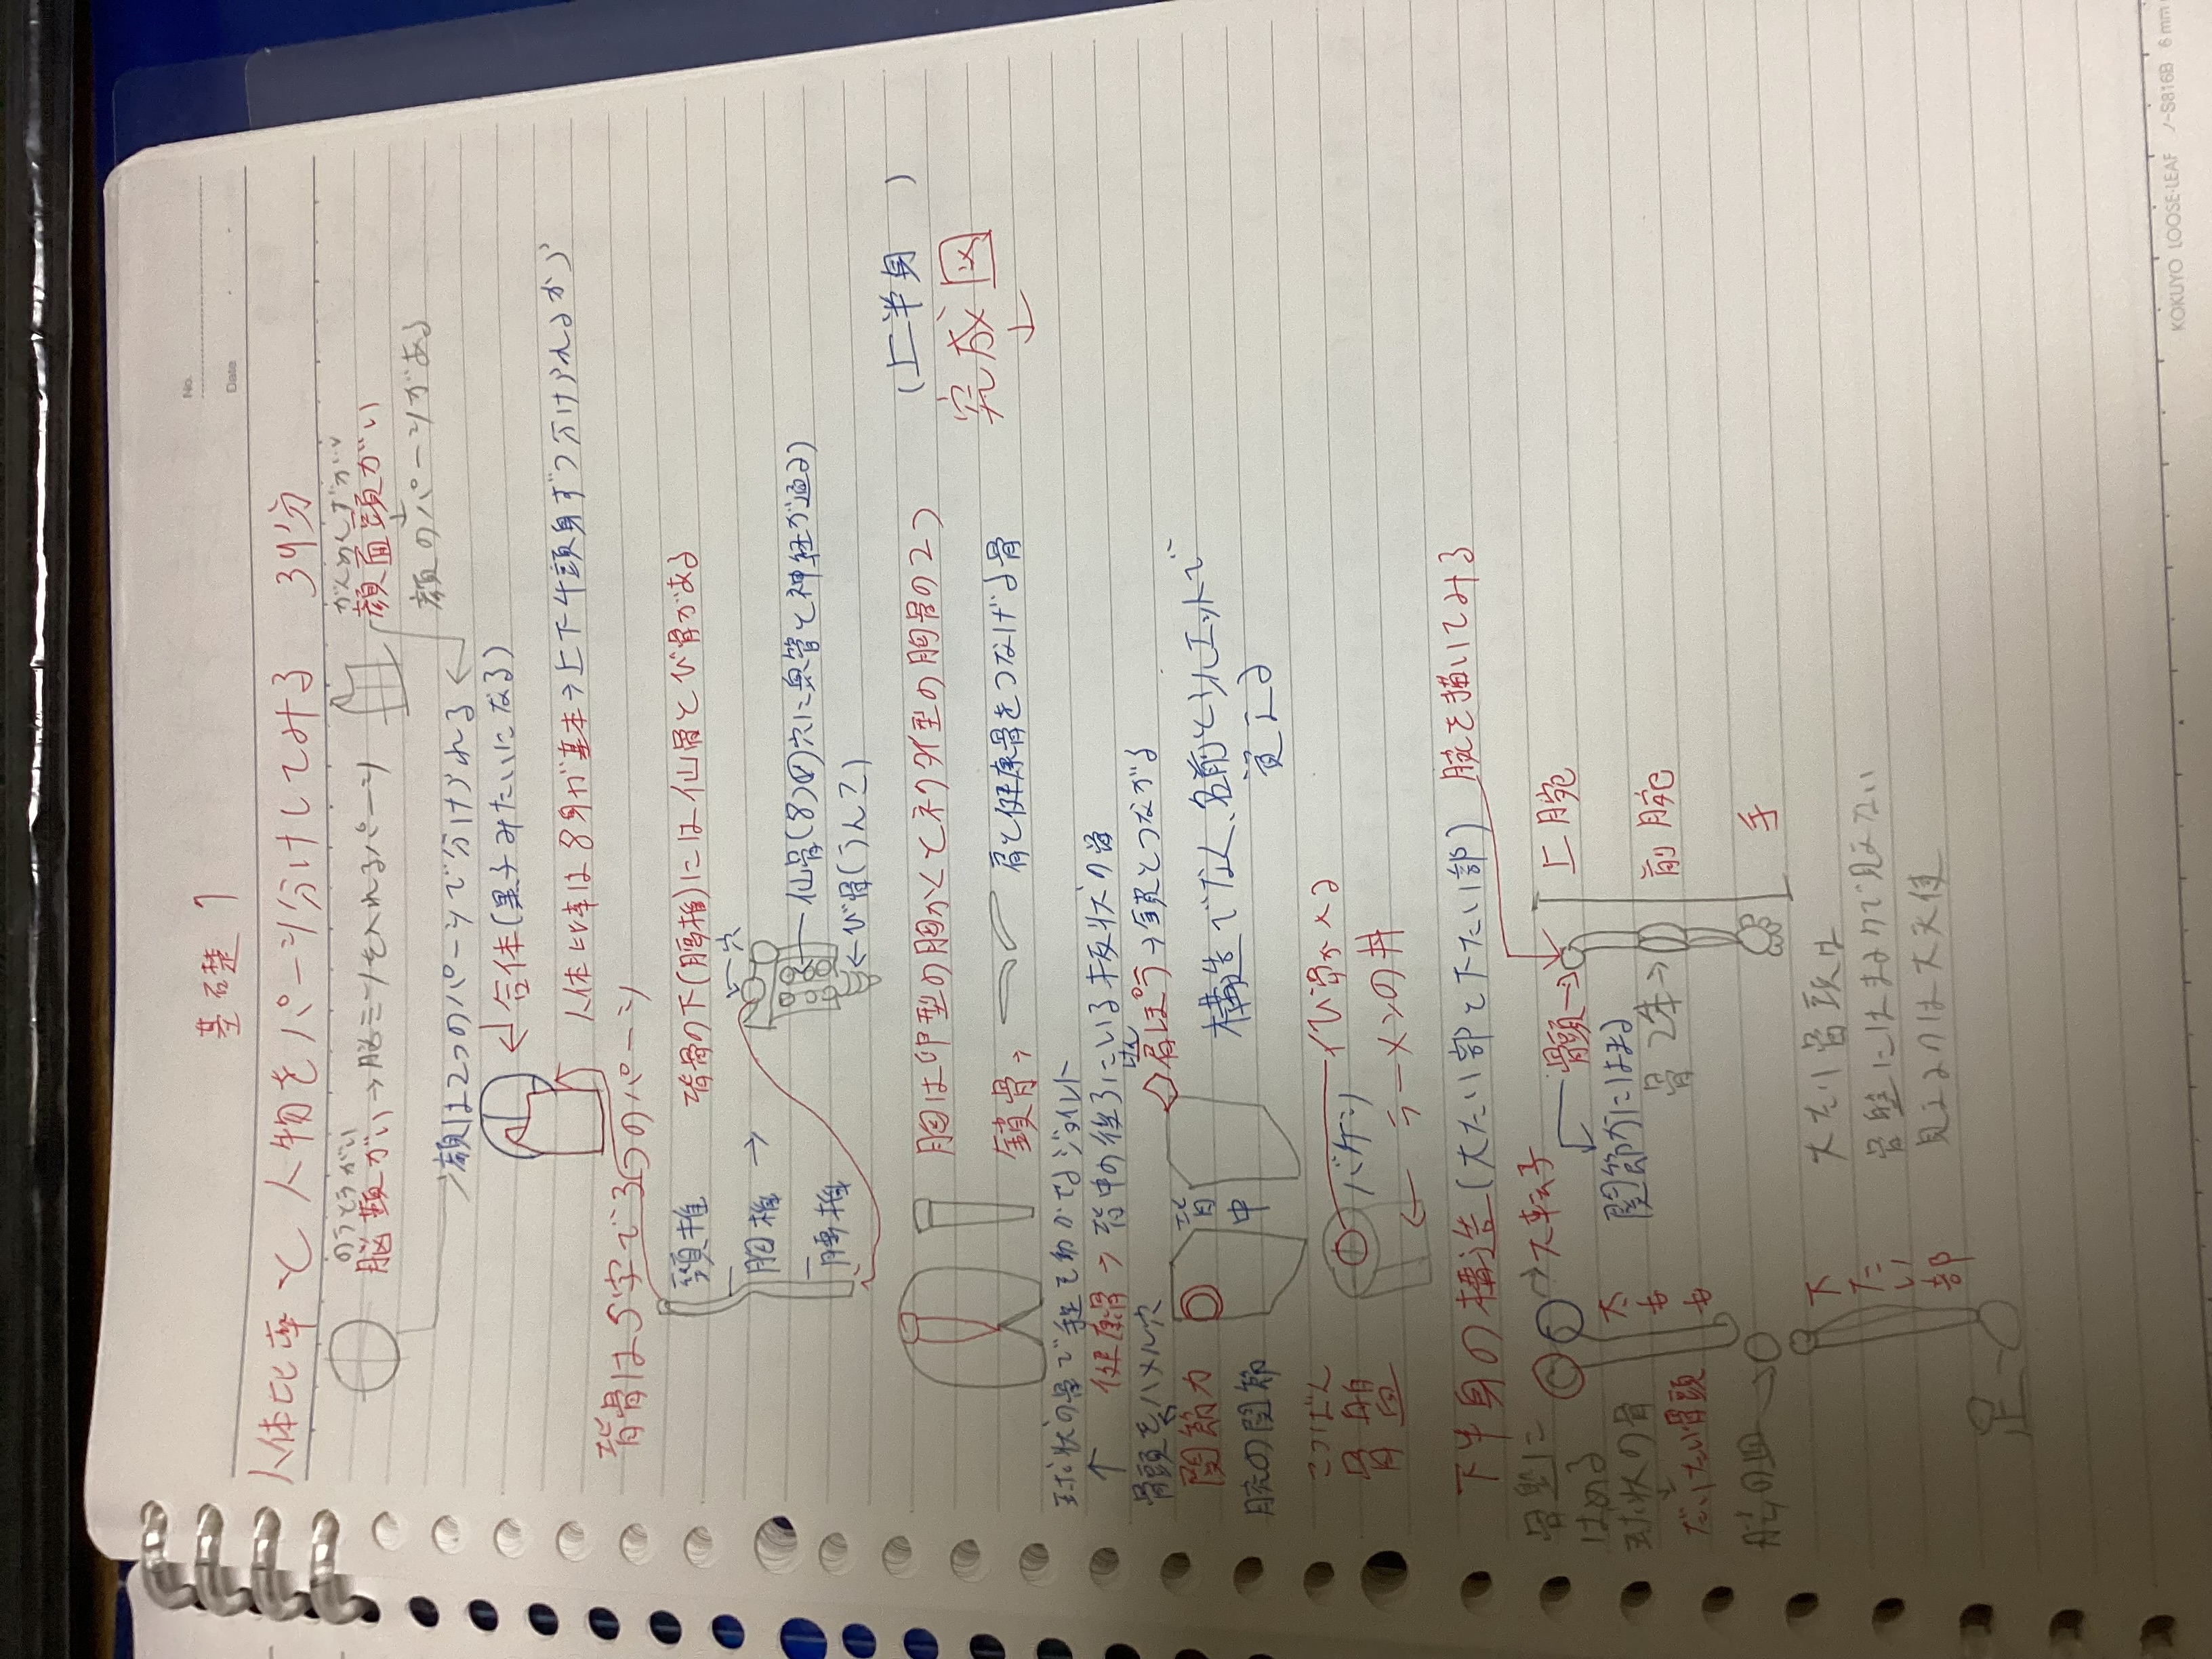 No.
Date
基礎 1
人体比率と人物をパーツ分けしてみる 34分
のうとうがい
脳頭がい→脳ミソを入れるパーツ
がんめんずがい
顔面頭がい
顔のパーツがある
顔は2つのパーツで分けられる
合体(異子みたいになる)
人体比率は8身が基本→上下4頭身ずつ分けられるか
背骨はS字で3つのパーツ
頸椎
胸椎→
腰椎
背骨の下(腰椎)には仙骨とび骨がある
穴
仙骨(8)の穴に血管と神経が通る
←び骨(うんこ)
胸は卵型の胸かくとネクタイ型の胸骨の2つ
(上半身 )
完成図
鎖骨→
肩と健康骨をつなげる骨
球状の骨で手産で動かせるジョイント
健康骨→背中の後ろにいる板状の骨
骨頭をハメル穴
肩ぽう→鎖骨とつながる
関節カ
腕の関節
背中
構造でなく、名前とシルエットで
覚える
こつばん
骨盤
バケツ
び骨が入る
←ラーメンの丼
下半身の構造(大たい部と下たい部)
腕を描いてみる
骨盤に
はめる
球状の骨
だいたい骨頭
→大転子
太もも
骨頭→
関節カにはまる
骨 2本→
上腕
前腕
手
膝の皿→
下たい部
足→
大たい骨頭は
骨盤にはまるので見えない
見えるのは大天使
KOKUYO LOOSE-LEAF ノ-S816B 6mm